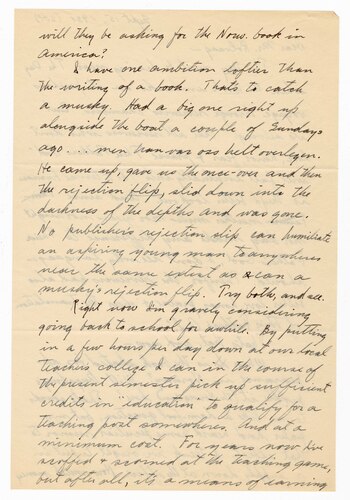 will they be asking for the Norw. book in
America?
I have one ambition loftier than
the writing of a book. Thats to catch
a musky. Had a big one right up
alongside the boat a couple of Sundays
ago.... men han var oss helt overlegen.
He came up, gave us the once-over and then
the rejection flip, slid down into the
darkness of the depths and was gone.
No publisher's rejection slip can humiliate
an aspiring young man to anywheres
near the same extent as can a
musky's rejection flip. Try both, and see.
Right now I'm gravely considering
going back to school for awhile. By putting
in a few hours per day down at our local
Teachers College I can in the course of
the present semester pick up sufficient
credits in "education" to qualify for a
teaching post somewheres. And at a
minimum cost. For years now I've
scoffed & scorned at the teaching game,
but after all, it's a means of earning